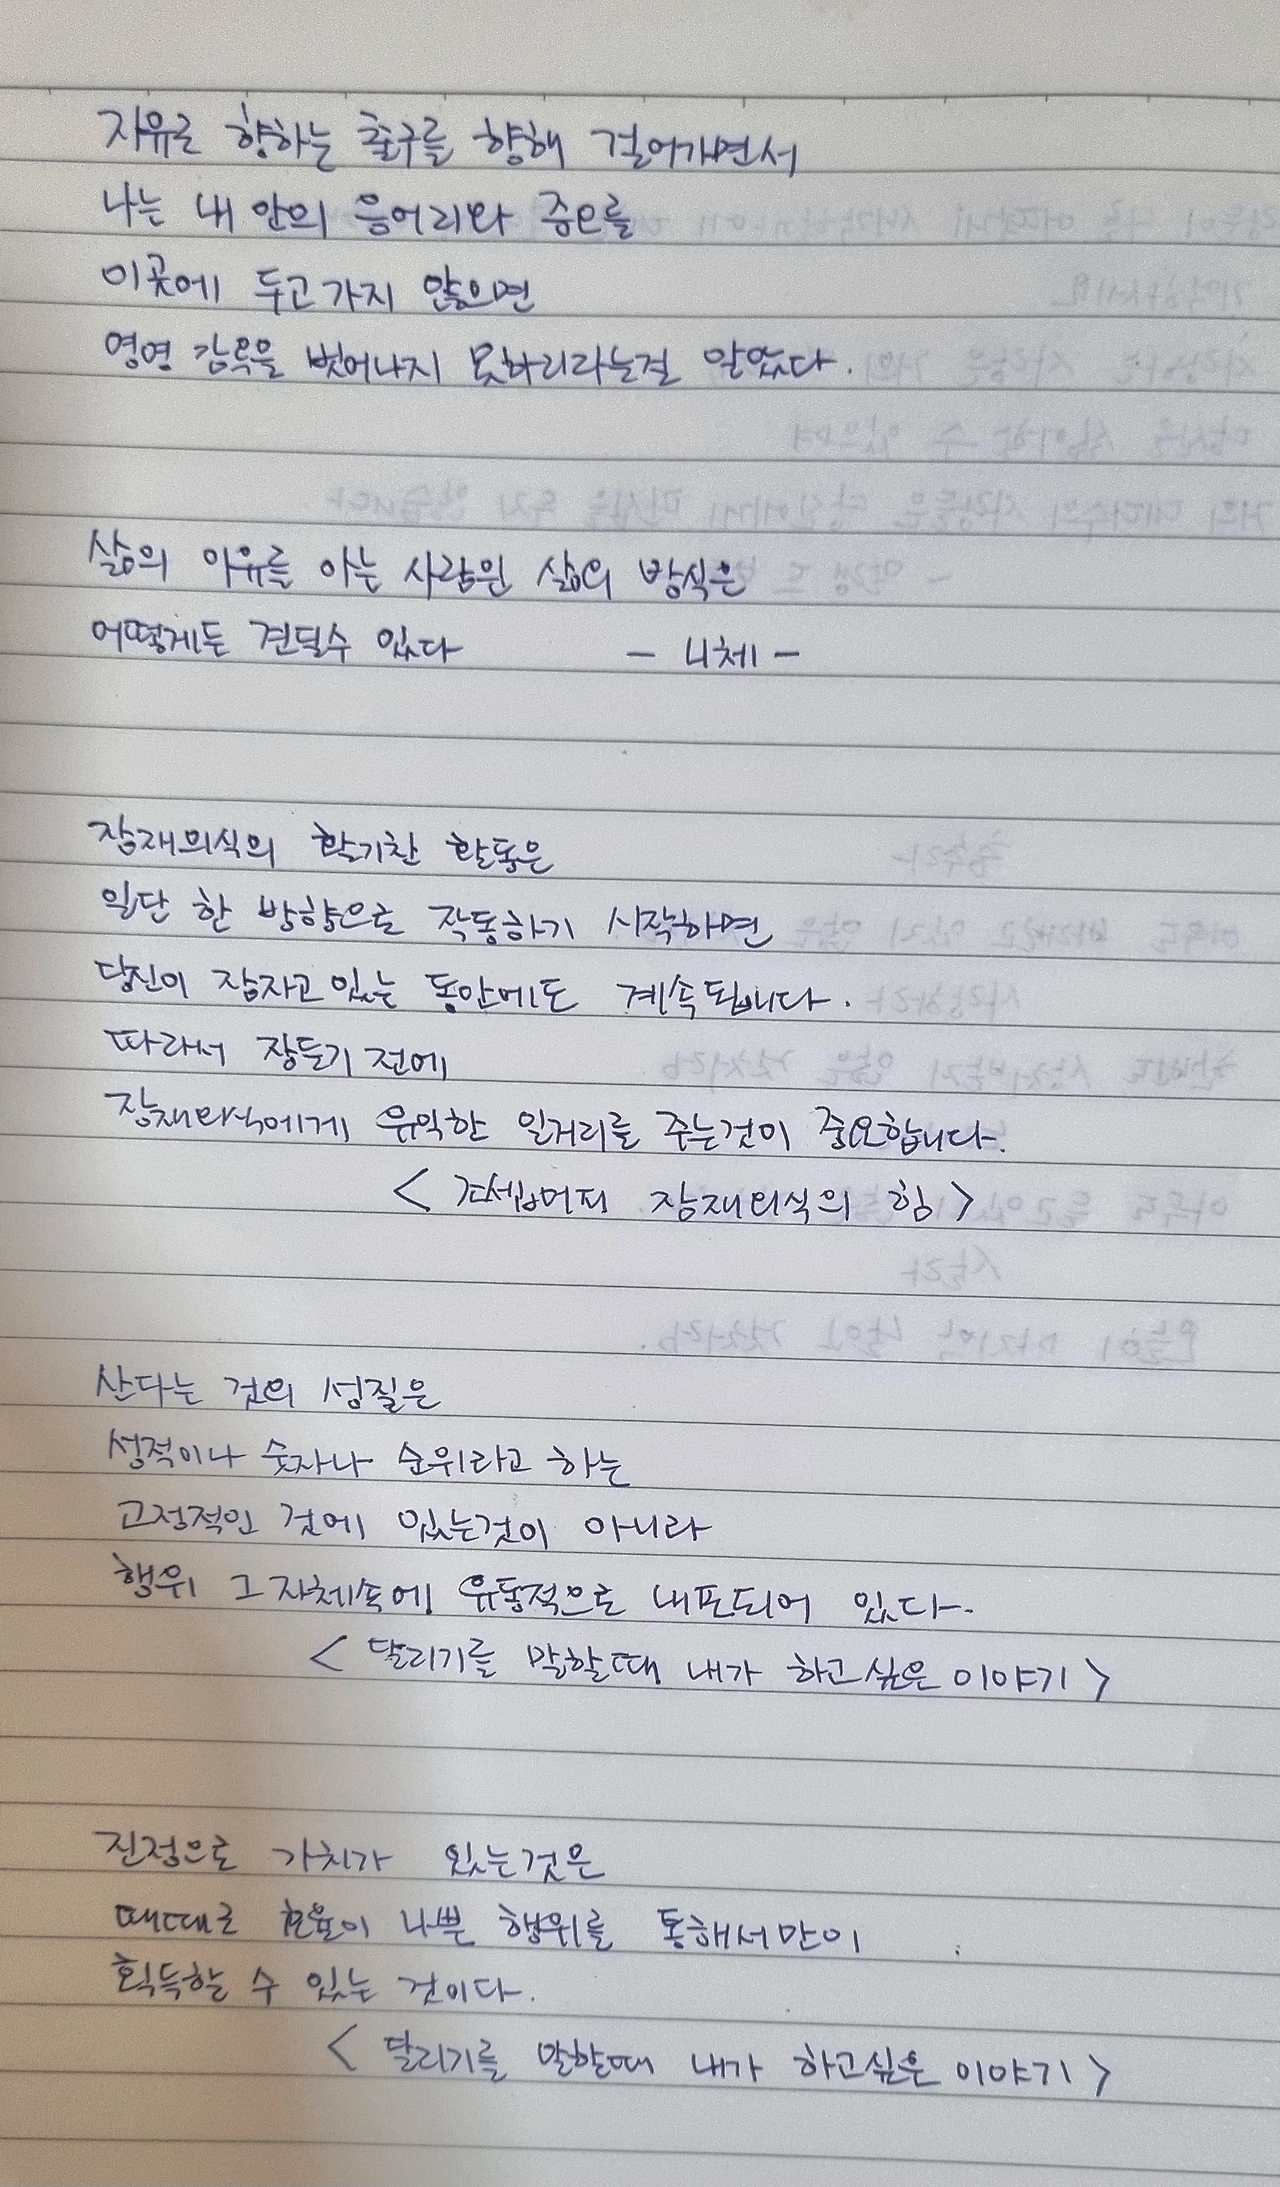 자유로 향하는 출구를 향해 걸어가면서
나는 내 안의 응어리와 증오를
이곳에 두고가지 않으면
영영 감옥을 벗어나지 못하리라는걸 알았다.
삶의 이유를 아는 사람은 삶의 방식은
어떻게든 견딜수 있다 - 니체 -
잠재의식의 활기찬 활동은
일단 한 방향으로 작동하기 시작하면
당신이 잠자고 있는 동안에도 계속됩니다.
따라서 잠들기 전에
잠재의식에게 유익한 일거리를 주는것이 중요합니다.
< 죠셉머피 잠재의식의 힘 >
산다는 것의 성질은
성적이나 숫자나 순위라고 하는
고정적인 것에 있는것이 아니라
행위 그자체속에 유동적으로 내포되어 있다.
< 달리기를 말할때 내가 하고싶은 이야기 >
진정으로 가치가 있는것은
때때로 효율이 나쁜 행위를 통해서만이
획득할 수 있는 것이다.
< 달리기를 말할때 내가 하고싶은 이야기 >